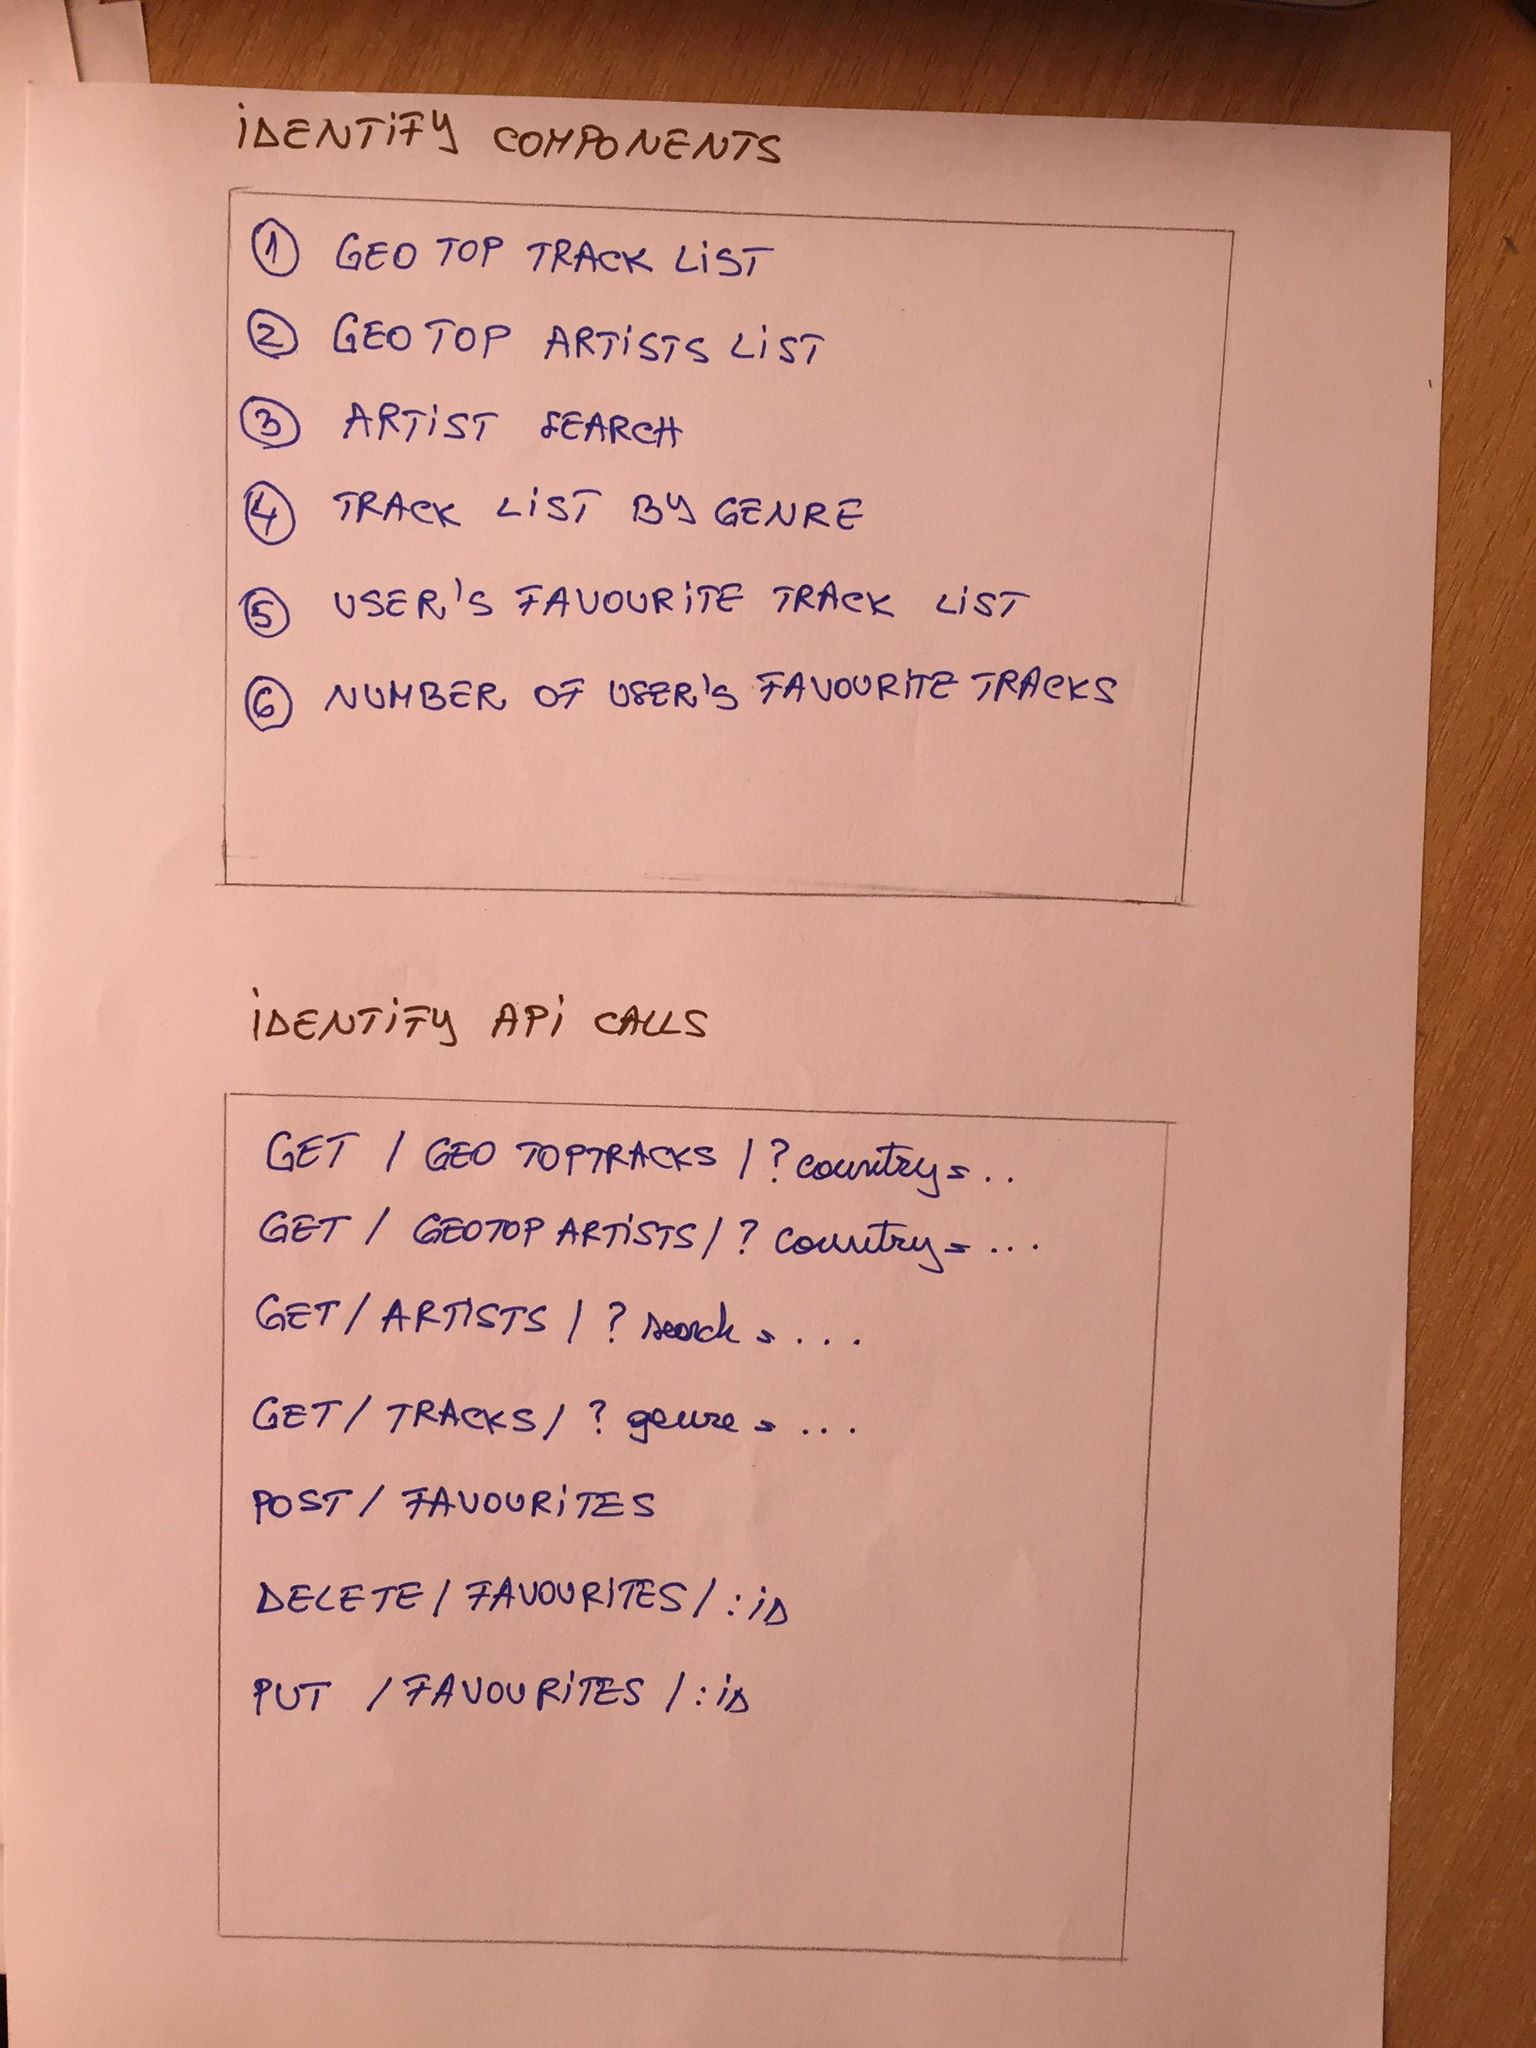 iDENTiFY COMPONENTS
① GEO TOP TRACK LiST
② GEO TOP ARTiSTS LiST
③ ARTiST SEARCH
④ TRACK LiST BY GENRE
⑤ USER'S FAVOURiTE TRACK LiST
⑥ NUMBER OF USER'S FAVOURiTE TRACKS
iDENTiFY APi CALLS
GET / GEO TOPTRACKS / ? country = ..
GET / GEOTOP ARTiSTS / ? country = ...
GET / ARTiSTS / ? search = ...
GET / TRACKS / ? genre = ...
POST / FAVOURiTES
DELETE / FAVOURiTES / :iD
PUT / FAVOURiTES / :iD